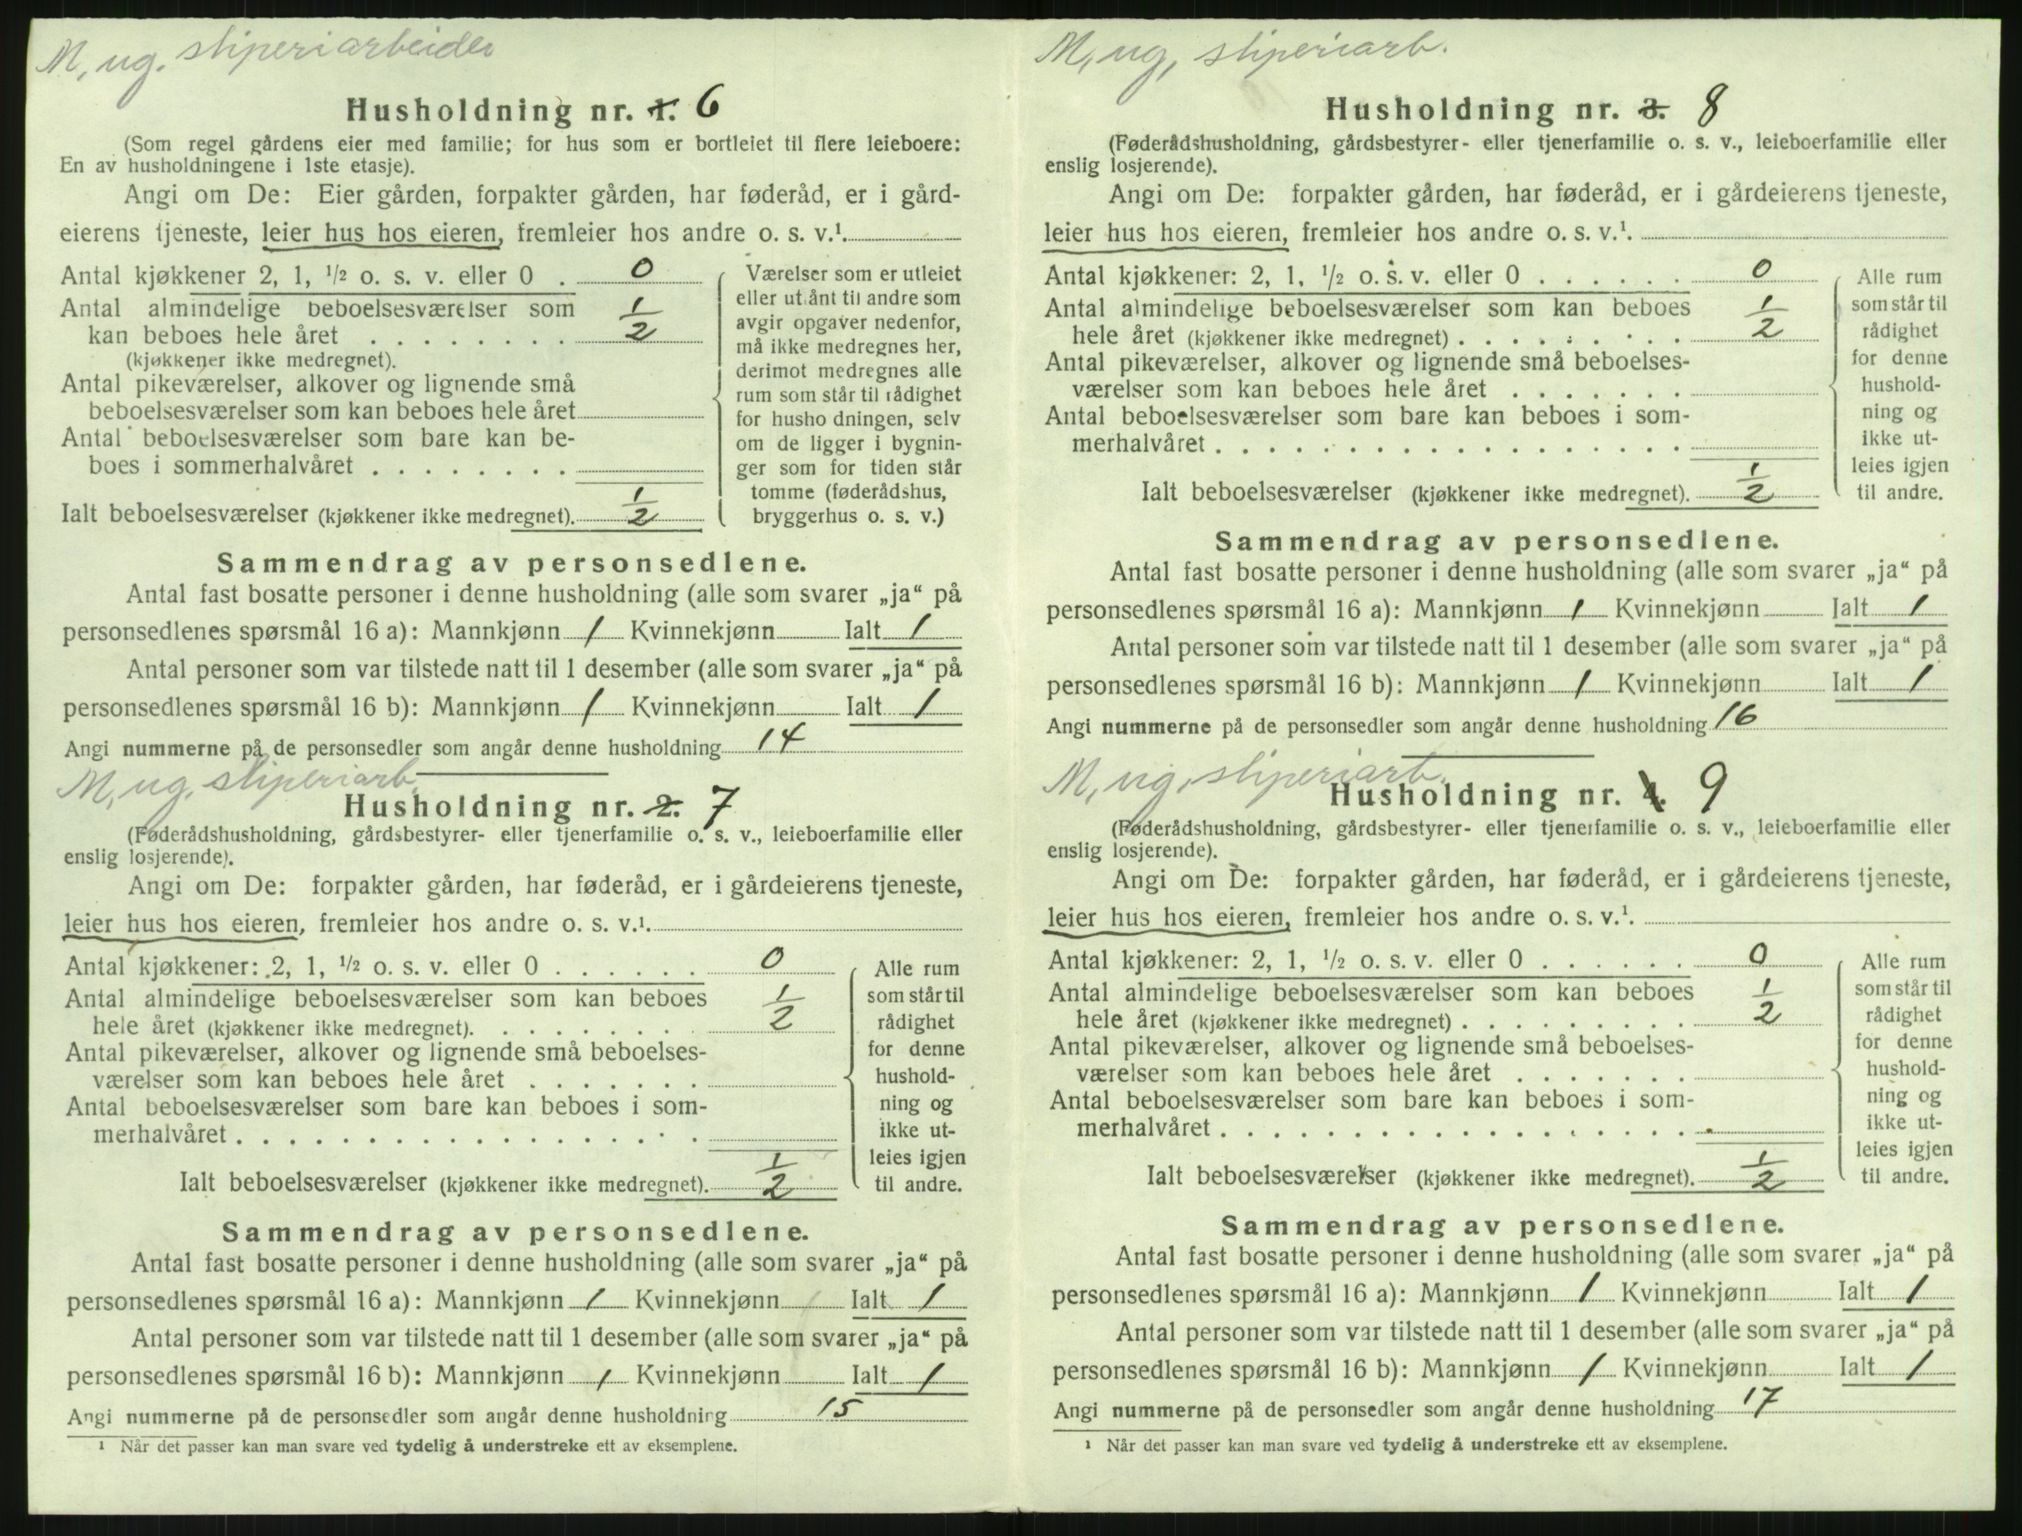 M, ug. sliperiarbeider
Husholdning nr. 1. 6
(Som regel gårdens eier med familie; for hus som er bortleiet til flere leieboere:
En av husholdningene i 1ste etasje).
Angi om De: Eier gården, forpakter gården, har føderåd, er i gård-
eierens tjeneste, leier hus hos eieren, fremleier hos andre o. s. v.¹
Antal kjøkkener 2, 1, ½ o. s. v. eller 0 . 0
Antal almindelige beboelsesværelser som
kan beboes hele året . . . . . . . . 1/2
(kjøkkener ikke medregnet).
Antal pikeværelser, alkover og lignende små
beboelsesværelser som kan beboes hele året
Antal beboelsesværelser som bare kan be-
boes i sommerhalvåret . . . . . . .
Ialt beboelsesværelser (kjøkkener ikke medregnet). 1/2
Værelser som er utleiet
eller utlånt til andre som
avgir opgaver nedenfor,
må ikke medregnes her,
derimot medregnes alle
rum som står til rådighet
for husholdningen, selv
om de ligger i bygnin-
ger som for tiden står
tomme (føderådshus,
bryggerhus o. s. v.)
Sammendrag av personsedlene.
Antal fast bosatte personer i denne husholdning (alle som svarer „ja“ på
personsedlenes spørsmål 16 a): Mannkjønn 1 Kvinnekjønn Ialt 1
Antal personer som var tilstede natt til 1 desember (alle som svarer „ja“ på
personsedlenes spørsmål 16 b): Mannkjønn 1 Kvinnekjønn Ialt 1
Angi nummerne på de personsedler som angår denne husholdning 14
M, ug. sliperiarb.
Husholdning nr. 2. 7
(Føderådshusholdning, gårdsbestyrer- eller tjenerfamilie o. s. v., leieboerfamilie eller
enslig losjerende).
Angi om De: forpakter gården, har føderåd, er i gårdeierens tjeneste,
leier hus hos eieren, fremleier hos andre o. s. v.¹.
Antal kjøkkener: 2, 1, ½ o. s. v. eller 0 . . . . . . 0
Antal almindelige beboelsesværelser som kan beboes
hele året (kjøkkener ikke medregnet). . . . . . . . . 1/2
Antal pikeværelser, alkover og lignende små beboelses-
værelser som kan beboes hele året . . . . . . .
Antal beboelsesværelser som bare kan beboes i som-
merhalvåret . . . . . . . . . . . . . . . . . .
Ialt beboelsesværelser (kjøkkener ikke medregnet). 1/2
Alle rum
som står til
rådighet
for denne
hushold-
ning og
ikke ut-
leies igjen
til andre.
Sammendrag av personsedlene.
Antal fast bosatte personer i denne husholdning (alle som svarer „ja“ på
personsedlenes spørsmål 16 a): Mannkjønn 1 Kvinnekjønn Ialt 1
Antal personer som var tilstede natt til 1 desember (alle som svarer „ja“ på
personsedlenes spørsmål 16 b): Mannkjønn 1 Kvinnekjønn Ialt 1
Angi nummerne på de personsedler som angår denne husholdning 15
¹ Når det passer kan man svare ved tydelig å understreke ett av eksemplene.
M, ug, sliperiarb.
Husholdning nr. 3. 8
(Føderådshusholdning, gårdsbestyrer- eller tjenerfamilie o. s. v., leieboerfamilie eller
enslig losjerende).
Angi om De: forpakter gården, har føderåd, er i gårdeierens tjeneste,
leier hus hos eieren, fremleier hos andre o. s. v.¹.
Antal kjøkkener: 2, 1, ½ o. s. v. eller 0 . . . . . . 0
Antal almindelige beboelsesværelser som kan beboes
hele året (kjøkkener ikke medregnet) . . . . . . . . . 1/2
Antal pikeværelser, alkover og lignende små beboelses-
værelser som kan beboes hele året . . . . . . .
Antal beboelsesværelser som bare kan beboes i som-
merhalvåret . . . . . . . . . . . . . . . . . .
Ialt beboelsesværelser (kjøkkener ikke medregnet). 1/2
Alle rum
som står til
rådighet
for denne
hushold-
ning og
ikke ut-
leies igjen
til andre.
Sammendrag av personsedlene.
Antal fast bosatte personer i denne husholdning (alle som svarer „ja“ på
personsedlenes spørsmål 16 a): Mannkjønn 1 Kvinnekjønn Ialt 1
Antal personer som var tilstede natt til 1 desember (alle som svarer „ja“ på
personsedlenes spørsmål 16 b): Mannkjønn 1 Kvinnekjønn Ialt 1
Angi nummerne på de personsedler som angår denne husholdning 16
M, ug, sliperiarb.
Husholdning nr. 4. 9
(Føderådshusholdning, gårdsbestyrer- eller tjenerfamilie o. s. v., leieboerfamilie eller
enslig losjerende).
Angi om De: forpakter gården, har føderåd, er i gårdeierens tjeneste,
leier hus hos eieren, fremleier hos andre o. s. v.¹.
Antal kjøkkener: 2, 1, ½ o. s. v. eller 0 . . . . . . 0
Antal almindelige beboelsesværelser som kan beboes
hele året (kjøkkener ikke medregnet) . . . . . . . . . 1/2
Antal pikeværelser, alkover og lignende små beboelses-
værelser som kan beboes hele året . . . . . . .
Antal beboelsesværelser som bare kan beboes i som-
merhalvåret . . . . . . . . . . . . . . . . . .
Ialt beboelsesværelser (kjøkkener ikke medregnet). 1/2
Alle rum
som står til
rådighet
for denne
hushold-
ning og
ikke ut-
leies igjen
til andre.
Sammendrag av personsedlene.
Antal fast bosatte personer i denne husholdning (alle som svarer „ja“ på
personsedlenes spørsmål 16 a): Mannkjønn 1 Kvinnekjønn Ialt 1
Antal personer som var tilstede natt til 1 desember (alle som svarer „ja“ på
personsedlenes spørsmål 16 b): Mannkjønn 1 Kvinnekjønn Ialt 1
Angi nummerne på de personsedler som angår denne husholdning 17
¹ Når det passer kan man svare ved tydelig å understreke ett av eksemplene.